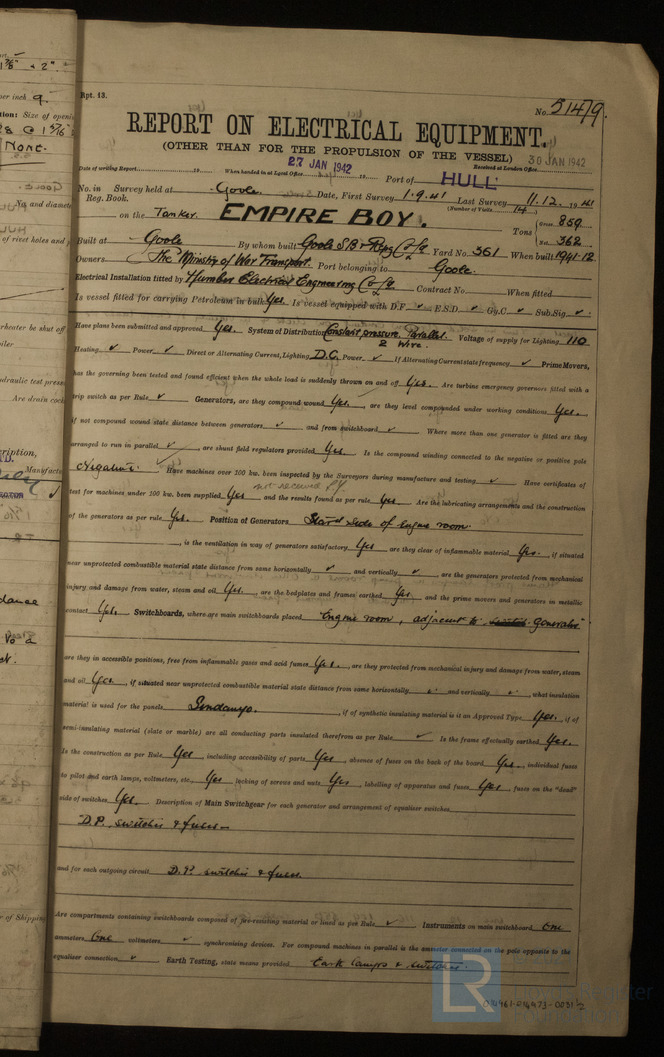 Rpt. 13.
No. 51479.
REPORT ON ELECTRICAL EQUIPMENT.
(OTHER THAN FOR THE PROPULSION OF THE VESSEL)
27 JAN 1942
30 JAN 1942
Date of writing Report 19 When handed in at Local Office 19 Port of HULL Received at London Office
No. in Survey held at Goole. Date, First Survey 1.9.41 Last Survey 11.12.1941
Reg. Book. (Number of Visits 14)
on the Tanker. EMPIRE BOY. Tons Gross 859 Net 362
Built at Goole By whom built Goole S B & Repg Co/Ltd Yard No. 361 When built 1941-12
Owners The Ministry of War Transport. Port belonging to Goole.
Electrical Installation fitted by Humber Electrical Engineering Co/Ltd Contract No. When fitted
Is vessel fitted for carrying Petroleum in bulk Yes. Is vessel equipped with D.F. ✓ E.S.D. ✓ Gy.C ✓ Sub.Sig ✓
Have plans been submitted and approved Yes. System of Distribution Constant pressure. Parallel. 2 wire. Voltage of supply for Lighting 110
Heating ✓ Power ✓ Direct or Alternating Current, Lighting D.C. Power ✓ If Alternating Current state frequency ✓ Prime Movers,
has the governing been tested and found efficient when the whole load is suddenly thrown on and off Yes. Are turbine emergency governors fitted with a
trip switch as per Rule ✓ Generators, are they compound wound Yes., are they level compounded under working conditions Yes.
if not compound wound state distance between generators ✓ and from switchboard ✓ Where more than one generator is fitted are they
arranged to run in parallel ✓, are shunt field regulators provided Yes. Is the compound winding connected to the negative or positive pole
Negative. Have machines over 100 kw. been inspected by the Surveyors during manufacture and testing ✓ Have certificates of
not received
test for machines under 100 kw. been supplied Yes and the results found as per rule Yes. Are the lubricating arrangements and the construction
of the generators as per rule Yes. Position of Generators Star'd side of Engine room.
, is the ventilation in way of generators satisfactory Yes are they clear of inflammable material Yes. if situated
near unprotected combustible material state distance from same horizontally ✓ and vertically ✓, are the generators protected from mechanical
injury and damage from water, steam and oil Yes., are the bedplates and frames earthed Yes. and the prime movers and generators in metallic
contact Yes. Switchboards, where are main switchboards placed Engine room, adjacent to generator
are they in accessible positions, free from inflammable gases and acid fumes Yes., are they protected from mechanical injury and damage from water, steam
and oil Yes, if situated near unprotected combustible material state distance from same horizontally ✓ and vertically ✓, what insulation
material is used for the panels Sindanyo., if of synthetic insulating material is it an Approved Type Yes., if of
semi-insulating material (slate or marble) are all conducting parts insulated therefrom as per Rule ✓ Is the frame effectually earthed Yes.
Is the construction as per Rule Yes, including accessibility of parts Yes, absence of fuses on the back of the board Yes., individual fuses
to pilot and earth lamps, voltmeters, etc., Yes locking of screws and nuts Yes, labelling of apparatus and fuses Yes, fuses on the "dead"
side of switches Yes. Description of Main Switchgear for each generator and arrangement of equaliser switches
D.P. switches & fuses
and for each outgoing circuit D.P. switches & fuses
Are compartments containing switchboards composed of fire-resisting material or lined as per Rule ✓ Instruments on main switchboard One
ammeters One voltmeters ✓ synchronising devices. For compound machines in parallel is the ammeter connected on the pole opposite to the
equaliser connection ✓ Earth Testing, state means provided Earth lamps & switches.
LR
Register
014461-014473-0031 1/2